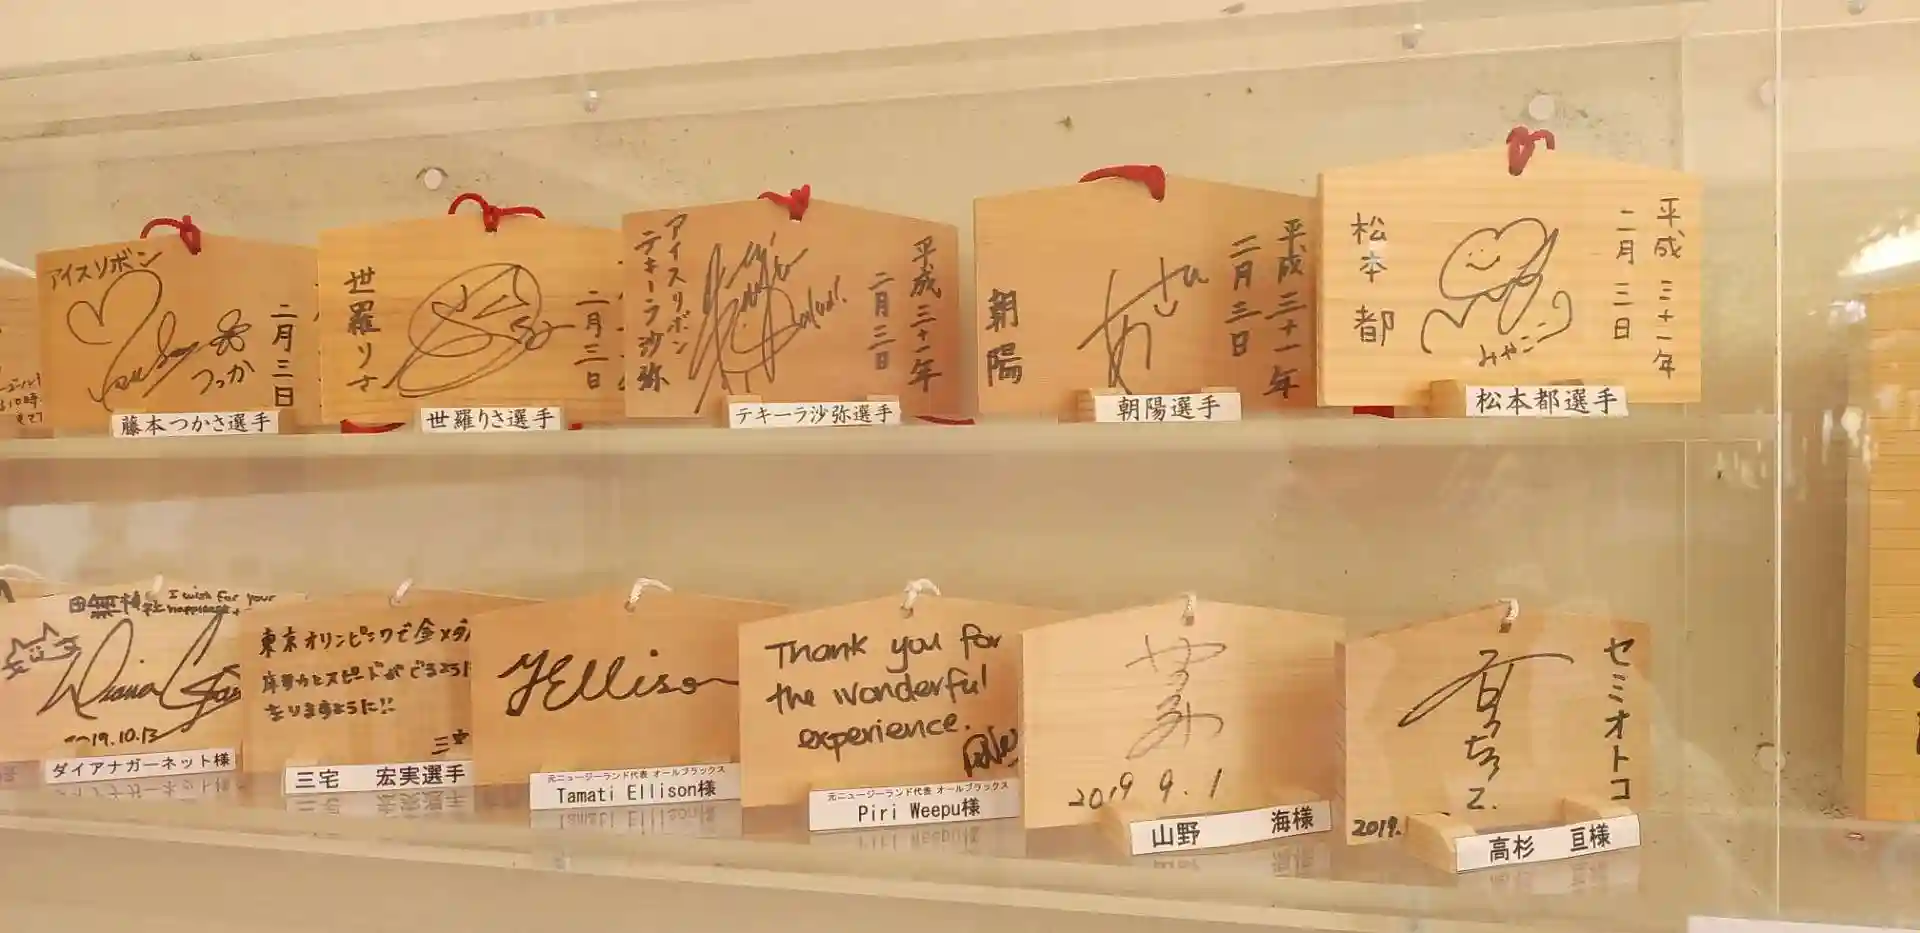 アイスリボン
つっか
二月三日
藤本つかさ選手
世羅りさ
二月三日
世羅りさ選手
アイスリボン
テキーラ沙弥
平成三十一年
二月三日
テキーラ沙弥選手
朝陽
あさひ
平成三十一年
二月三日
朝陽選手
松本都
みやここ
平成三十一年
二月三日
松本都選手
田無神社 I wish for your
happiness
19.10.13
ダイアナガーネット様
東京オリンピックで金メダ
なりますように!!
三宅
三宅 宏実選手
TEllison
元ニュージーランド代表 オールブラックス
Tamati Ellison様
Thank you for
the wonderful
experience.
元ニュージーランド代表 オールブラックス
Piri Weepu様
2019 9.1
山野 海様
セミオトコ
2019.
高杉 亘様